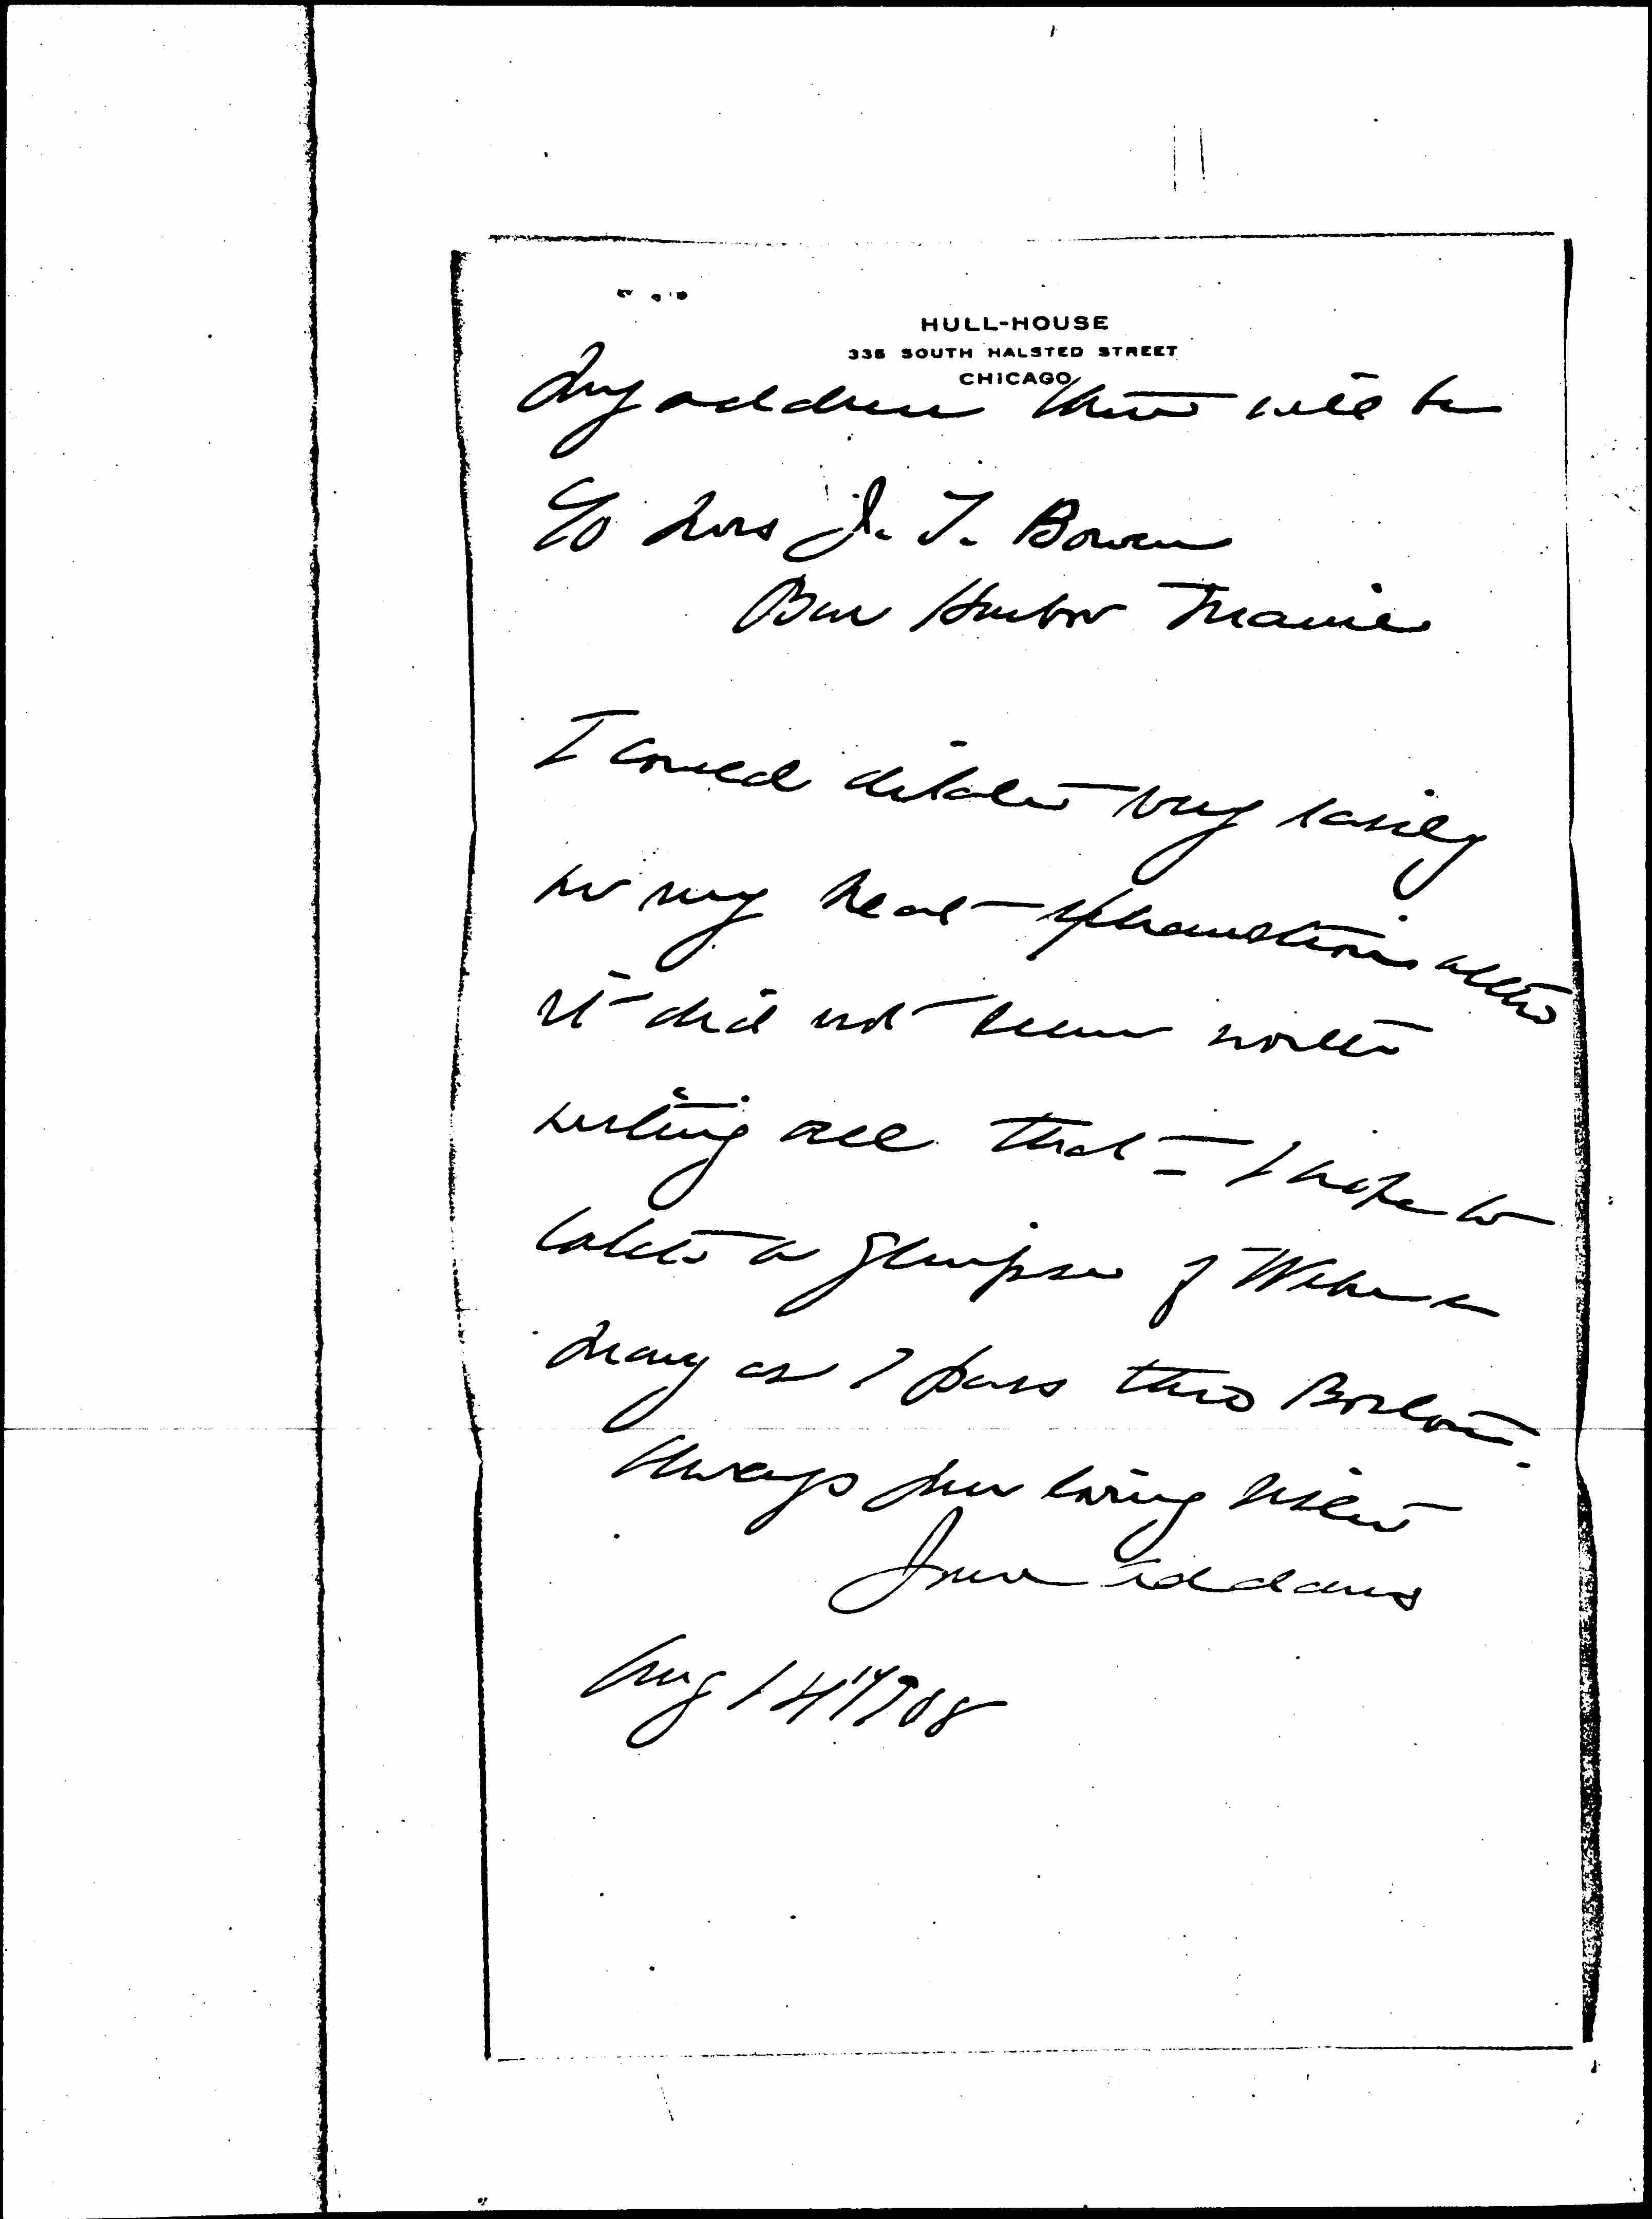 HULL-HOUSE
335 SOUTH HALSTED STREET
CHICAGO
My address there will be
c/o Mrs J. T. Bowen
Bar Harbor Maine
I could dilate very easily
on my heat-exhaustion altho
it did not seem worth
writing all that - I hope to
catch a glimpse of Weber &
Mary as I pass thro Boston.
Always your loving sister
Jane Addams
Aug 14" 1908